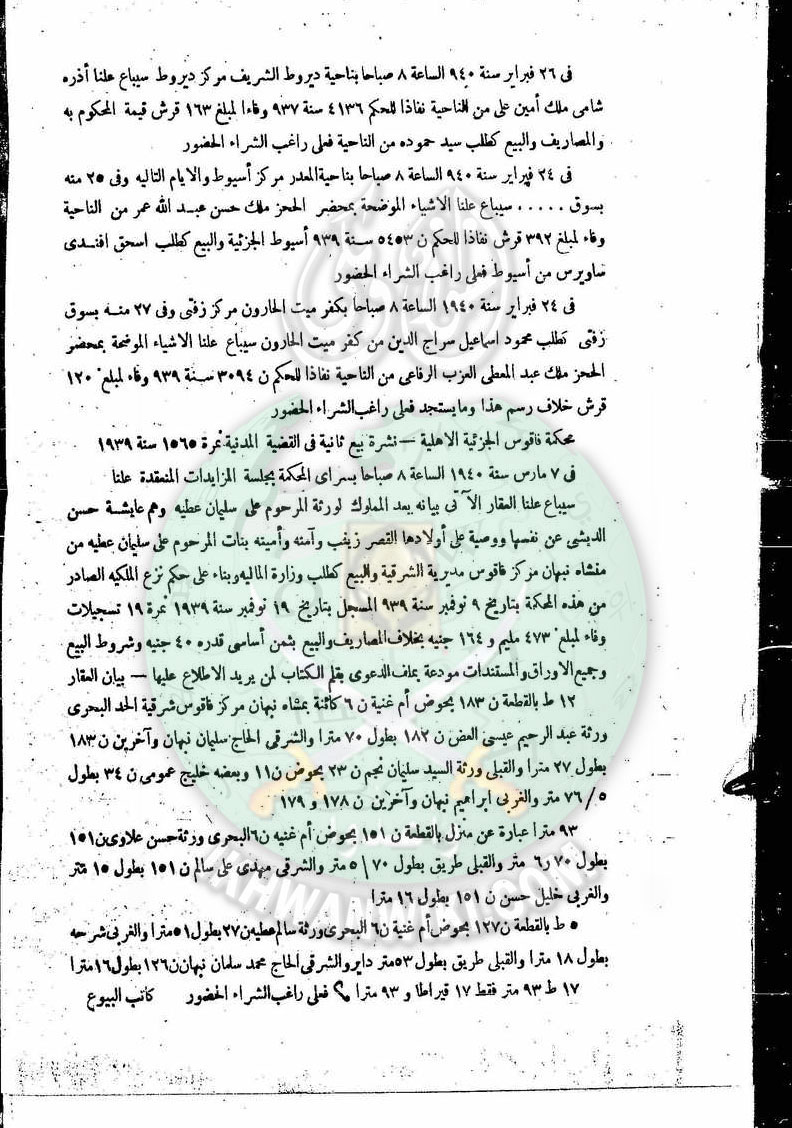 فى ٢٦ فبراير سنة ٩٤٠ الساعة ٨ صباحا بناحية ديروط الشريف مركز ديروط سيباع علنا أذره
شامى ملك أمين على من الناحية نفاذا للحكم ٤١٣٦ سنة ٩٣٧ وفاءا لمبلغ ١٦٣ قرش قيمة المحكوم به
والمصاريف والبيع كطلب سيد حموده من الناحية فعلى راغب الشراء الحضور
فى ٢٤ فبراير سنة ٩٤٠ الساعة ٨ صباحا بناحية المعدر مركز أسيوط والايام التاليه وفى ٢٥ منه
بسوق ..... سيباع علنا الاشياء الموضحة بمحضر الحجز ملك حسن عبد الله عمر من الناحية
وفاء لمبلغ ٣٩٢ قرش نفاذا للحكم ن ٥٤٥٣ سنة ٩٣٩ أسيوط الجزئية والبيع كطلب اسحق افندى
ساويرس من أسيوط فعلى راغب الشراء الحضور
فى ٢٤ فبراير سنة ١٩٤٠ الساعة ٨ صباحا بكفر ميت الحارون مركز زفتى وفى ٢٧ منه بسوق
زفتى كطلب محمود اسماعيل سراج الدين من كفر ميت الحارون سيباع علنا الاشياء الموضحة بمحضر
الحجز ملك عبد المعطى العزب الرفاعى من الناحية نفاذا للحكم ن ٣٠٩٤ سنة ٩٣٩ وفاء لمبلغ ١٢٠
قرش خلاف رسم هذا وما يستجد فعلى راغب الشراء الحضور
محكمة فاقوس الجزئية الاهلية — نشرة بيع ثانية فى القضية المدنية نمرة ١٥٦٥ سنة ١٩٣٩
فى ٧ مارس سنة ١٩٤٠ الساعة ٨ صباحا بسراى المحكمة بجلسة المزايدات المنعقدة علنا
سيباع علنا العقار الآتى بيانه بعد المملوك لورثة المرحوم على سليمان عطيه وهم عايشة حسن
الديشى عن نفسها ووصية على أولادها القصر زينب وآمنه وأمينه بنات المرحوم على سليمان عطيه من
منشاه نبهان مركز فاقوس مديرية الشرقية والبيع كطلب وزارة الماليه وبناء على حكم نزع الملكيه الصادر
من هذه المحكمة بتاريخ ٩ نوفمبر سنة ٩٣٩ المسجل بتاريخ ١٩ نوفمبر سنة ١٩٣٩ نمرة ١٩ تسجيلات
وفاء لمبلغ ٤٧٣ مليم و ١٦٤ جنيه بخلاف المصاريف والبيع بثمن أساسى قدره ٤٠ جنيه وشروط البيع
وجميع الاوراق والمستندات مودعة بملف الدعوى بقلم الكتاب لمن يريد الاطلاع عليها — بيان العقار
١٢ ط بالقطعة ن ١٨٣ بحوض أم غنية ن ٦ كائنة بمنشاه نبهان مركز فاقوس شرقية الحد البحرى
ورثة عبد الرحيم عيسى العض ن ١٨٢ بطول ٧٠ مترا والشرقى الحاج سليمان نبهان وآخرين ن ١٨٣
بطول ٢٧ مترا والقبلى ورثة السيد سليمان نجم ن ٢٣ بحوض ن ١١ وبعضه خليج عمومى ن ٣٤ بطول
٥/ ٧٦ متر والغربى ابراهيم نبهان وآخرين ن ١٧٨ و ١٧٩
٩٣ مترا عبارة عن منزل بالقطعة ن ١٥١ بحوض أم غنيه ن ٦ البحرى ورثة حسن علاوى ن ١٥١
بطول ٧٠ر٦ متر والقبلى طريق بطول ٧٠/ ٥ متر والشرقى مهدى على سالم ن ١٥١ بطول ١٥ متر
والغربى خليل حسن ن ١٥١ بطول ١٦ مترا
٥ ط بالقطعة ن ١٢٧ بحوض أم غنية ن ٦ البحرى ورثة سالم عطيه ن ٢٧ بطول ٥١ مترا والغربى شرحه
بطول ١٨ مترا والقبلى طريق بطول ٥٣ متر داير والشرقى الحاج محمد سلمان نبهان ن ١٢٦ بطول ١٦ مترا
١٧ ط ٩٣ متر فقط ١٧ قيراطا و ٩٣ مترا فعلى راغب الشراء الحضور كاتب البيوع
IKHWANWIKI.COM